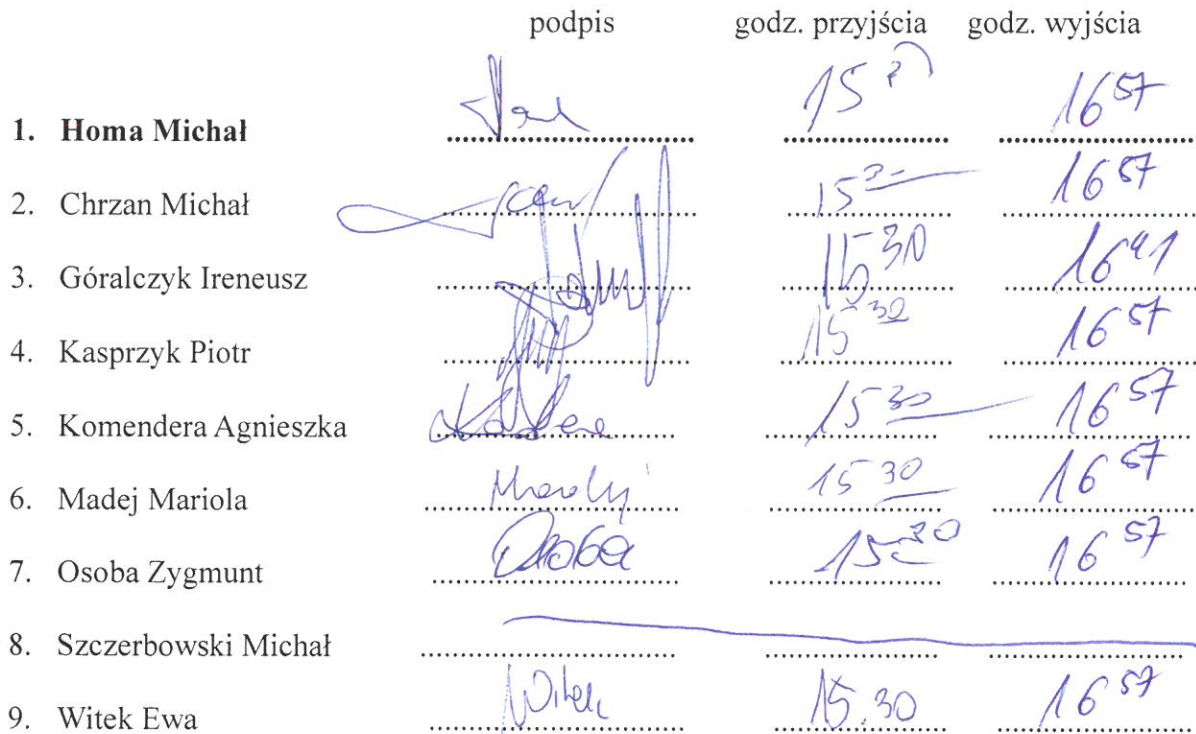 podpis godz. przyjścia godz. wyjścia
1. Homa Michał 16 57
2. Chrzan Michał 15 16 57
3. Góralczyk Ireneusz 15 30 16 41
4. Kasprzyk Piotr 15 30 16 57
5. Komendera Agnieszka 15 30 16 57
6. Madej Mariola Madej 15 30 16 57
7. Osoba Zygmunt Osoba 15 30 16 57
8. Szczerbowski Michał
9. Witek Ewa Witek 15.30 16 57